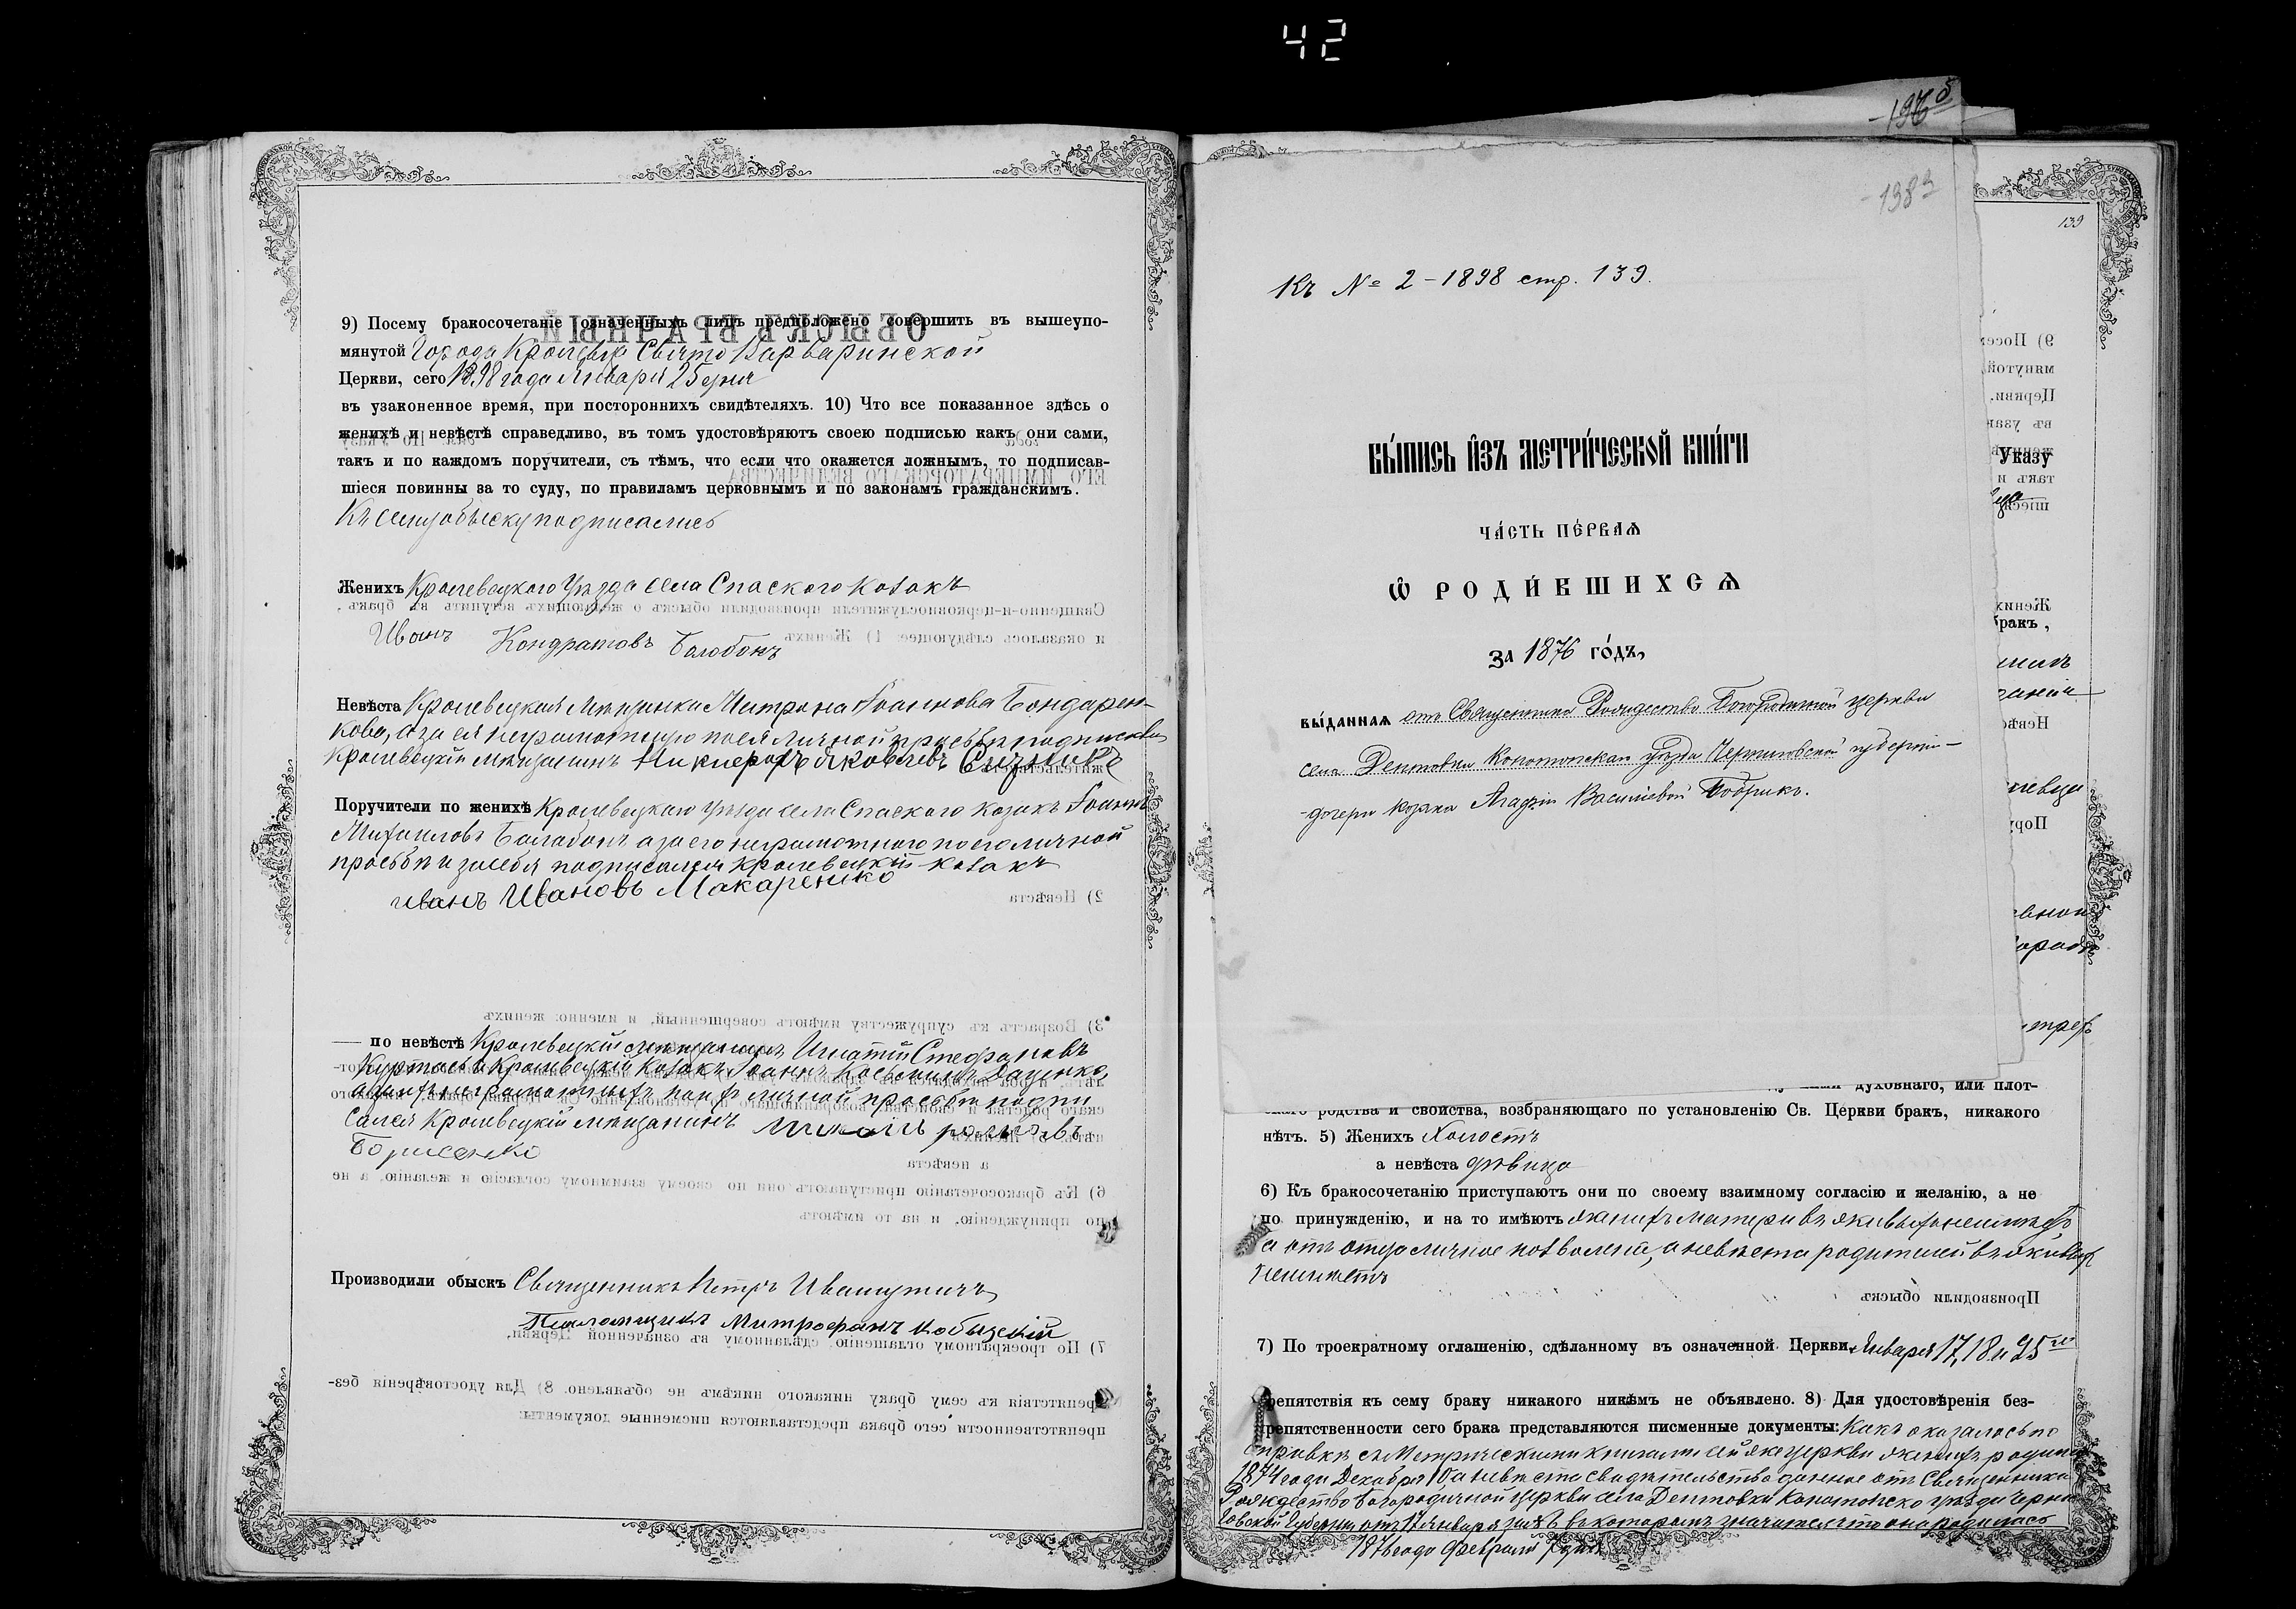 42
9) Посему бракосочетаніе означенныхъ лицъ предположено совершить въ вышеупо-
мянутой Города Кролевца Свято Варваринской
Церкви, сего 1898 года Января 25 дня
въ узаконенное время, при постороннихъ свидѣтеляхъ. 10) Что все показанное здѣсь о
женихѣ и невѣстѣ справедливо, въ томъ удостовѣряютъ своею подписью какъ они сами,
такъ и по каждомъ поручители, съ тѣмъ, что если что окажется ложнымъ, то подписав-
шіеся повинны за то суду, по правиламъ церковнымъ и по законамъ гражданскимъ.
Къ сему обыску подписались
Женихъ Кролевецкого Уѣзда села Спаского козакъ
Иванъ Кондратовъ Балобонъ
Невѣста Кролевецкая Мѣщанка Матрона Іоаннова Бондарен-
кова, а за ея неграмотную по ея личной просьбѣ подписался
Кролевецкій мѣщанинъ Никифоръ Яковлевъ
Поручители по женихѣ Кролевецкаго уѣзда села Спаского козакъ Іоаннъ
Михаиловъ Балабонъ а за его неграмотного по его личной
просьбѣ и за себя подписался Кролевецкій козакъ
Иванъ Ивановъ Макаренко
— по невѣстѣ Кролевецкій мѣщанинъ Игнатій Стефановъ
и Кролевецкій Козакъ Іоаннъ Косьминъ Даценко,
а за ихъ неграмотныхъ по ихъ личной просьбѣ подпи
сался Кролевецкій мѣщанинъ
Борисенко
Производили обыскъ Священникъ Петръ Ивашутичъ
Псаломщикъ Митрофанъ Кобызскій
139
-1983
Къ № 2-1898 стр. 139.
ВЫ́ПИСЬ И҆ЗЪ МЕТРИ́ЧЕСКОЙ КНИ́ГИ
ЧА́СТЬ ПЕ́РВАѦ
Ѽ РОДИ́ВШИХСѦ
ЗА 1876 ГО́ДЪ,
ВЫ́ДАННАѦ отъ Священника Рождество Богородичной церкви
села Дептовки Конотопскаго уѣзда Черниговской губерніи—
-дочери козака Агафіи Васильевой Бобрикъ.
Указу
бракъ,
духовнаго, или плот-
скаго родства и свойства, возбраняющаго по установленію Св. Церкви бракъ, никакого
нѣтъ. 5) Женихъ Холостъ
а невѣста дѣвица
6) Къ бракосочетанію приступаютъ они по своему взаимному согласію и желанію, а не
по принужденію, и на то имѣютъ женихъ матери въ живыхъ неимѣетъ
а отъ отца личное позволеніе, а невѣста родителей въ живыхъ
неимѣетъ
7) По троекратному оглашенію, сдѣланному въ означенной Церкви Января 17, 18 и 25го
препятствія къ сему браку никакого никѣмъ не объявлено. 8) Для удостовѣренія без-
препятственности сего брака представляются писменные документы: Какъ оказалось по
справкѣ съ Метрическими книгами сей же церкви женихъ родился
1874 года Декабря а невѣста свидѣтельство данное отъ Священника
Рождество Богородичной церкви села Дептовки Конотопско уѣзда Черни
говской Губерніи отъ 17 Января за №5 въ которомъ значится что она родилась
1876 года Февраля